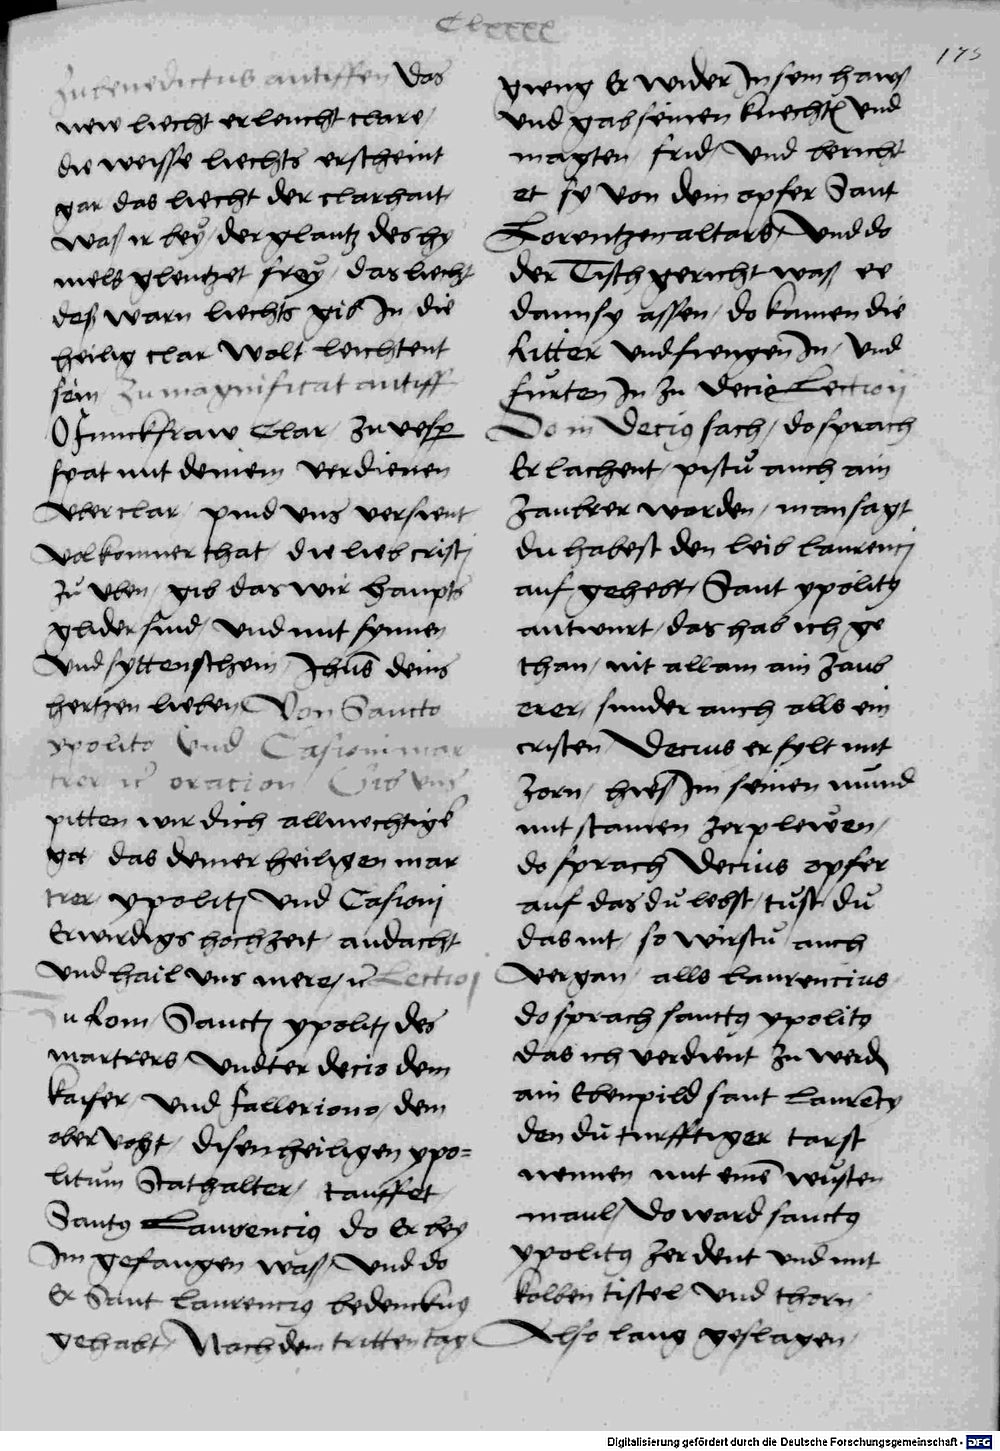 Clxxxx
175
Zu benedictus antiffen Das
new liecht erleucht clare /
die weisse liechts erscheint
gar das liecht der clarhait
Waß ir bey / der glantz des hy
mels glentzet frey / das liecht
deß warn liechts gib In die
heilig clar Wolt leichtent
sein Zu magnificat antiff
O Junckfraw Clar / zu vesp
spat mit deinem verdienen
Aber clar / pind vns versient
volkomner that / die lieb cristj
zů vben / gib das wir haupts
glider sind / Vnd mit synnen
Vnd syttenschein / Jhus deins
hertzen lieben Von Sancto
ypolito Vnd Casioni mar
trer ic oracion Gib vns
pitten wir dich allmechtig
got / das deiner heiligen mar
trer / ypolitj Vnd Casionj
Erwirdigs hochzeit / andacht
Vnd hail vns mere / ic Lectio j
u Rom / Sanctj ypolitj des
martrers / Vndter decio dem
kaiser / Vnd falleriono / dem
obervogt / disen heiligen ypo=
litum Stathalter / tauffet
Santus Laurencius do Er bey
Im gefangen waß / Vnd do
Er Sant laurencius bedencknus
gehabt / Nach dem tritten tag
gieng Er wider In sein hawß
Vnd gab seinen knecht Vnd
magten / frid / Vnd bericht
et sy Von dem opfer Sant
Lorentzen altars / Vnd do
der Tisch gericht waß ee
dann sy assen / do kamen die
Ritter Vnd fiengen In / Vnd
fürten In zu Decio Lectio ij
Do in Decius sach / do sprach
Er lachent / pistů auch ain
zaubrer worden / man sagt
du habest den leib laurencj
auf gehebt / Sant ypolitus
antwurt / das hab ich ge
than / nit allain ain zaub
erer / sunder auch alls ein
cristen / Decius erfylt mit
zorn / hieß Im seinen mund
mit stainen zerplewen /
do sprach Decius opfer
auf das dů lebst / tůst dů
das nit / so wirstů auch
vergan / alls laurencius
do sprach sanctus ypolitus
das ich verdient zu werd
ain Ebenpild sant laurency
den du turfftiger tarst
nennen mit einē wůsten
maul / do ward sanctus
ypolitus zerdent vnd mit
kolben tistel Vnd thorn /
Also lang geslagen /
Digitalisierung gefördert durch die Deutsche Forschungsgemeinschaft - DFG